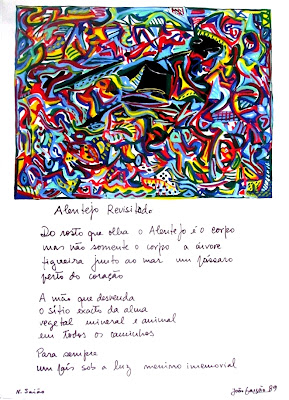 Alentejo Revisitado
Do rosto que olha o Alentejo é o corpo
mas não somente o corpo a árvore
figueira junto ao mar um pássaro
perto do coração
A mão que desvenda
o sítio exacto da alma
vegetal mineral e animal
em todos os caminhos
Para sempre
um país sob a luz menino imemorial
N. Saião
João Garção 89